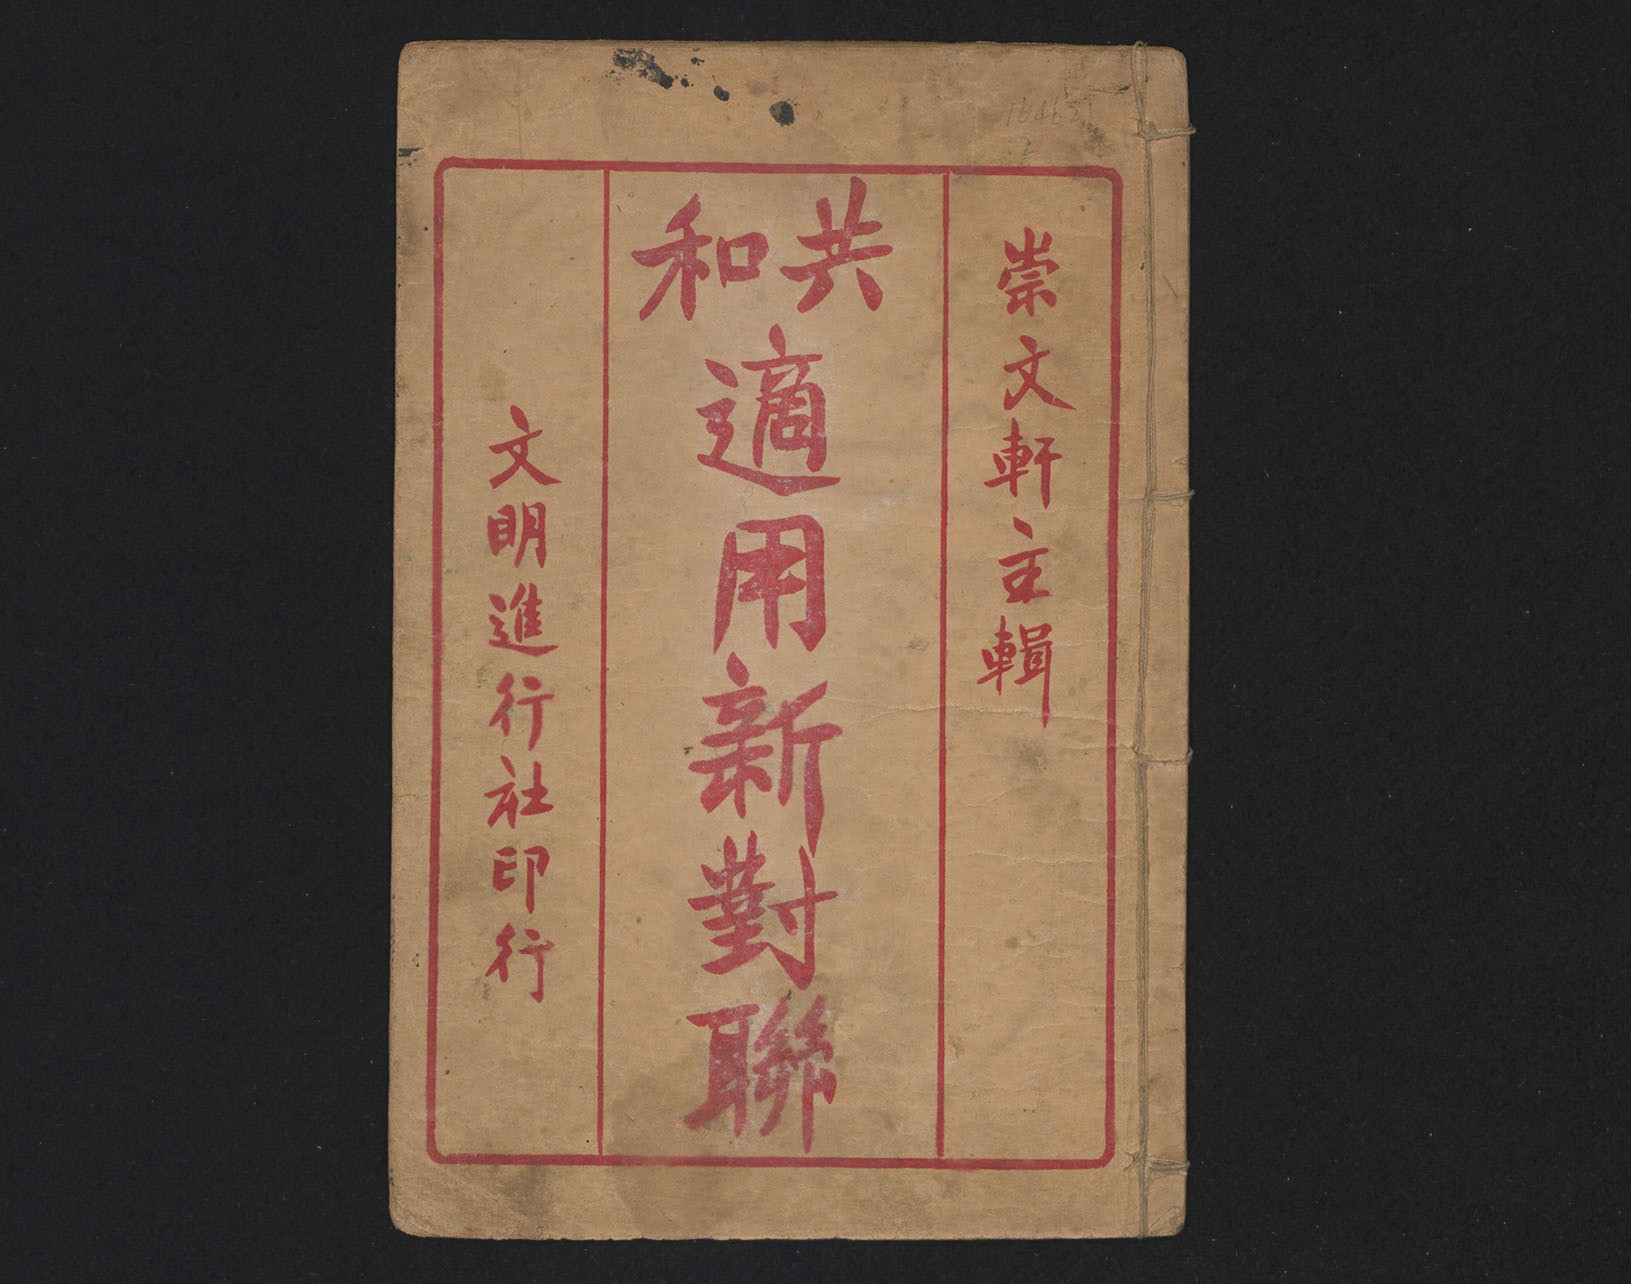 崇文軒主輯
共和
適用新對聯
文明進行社印行